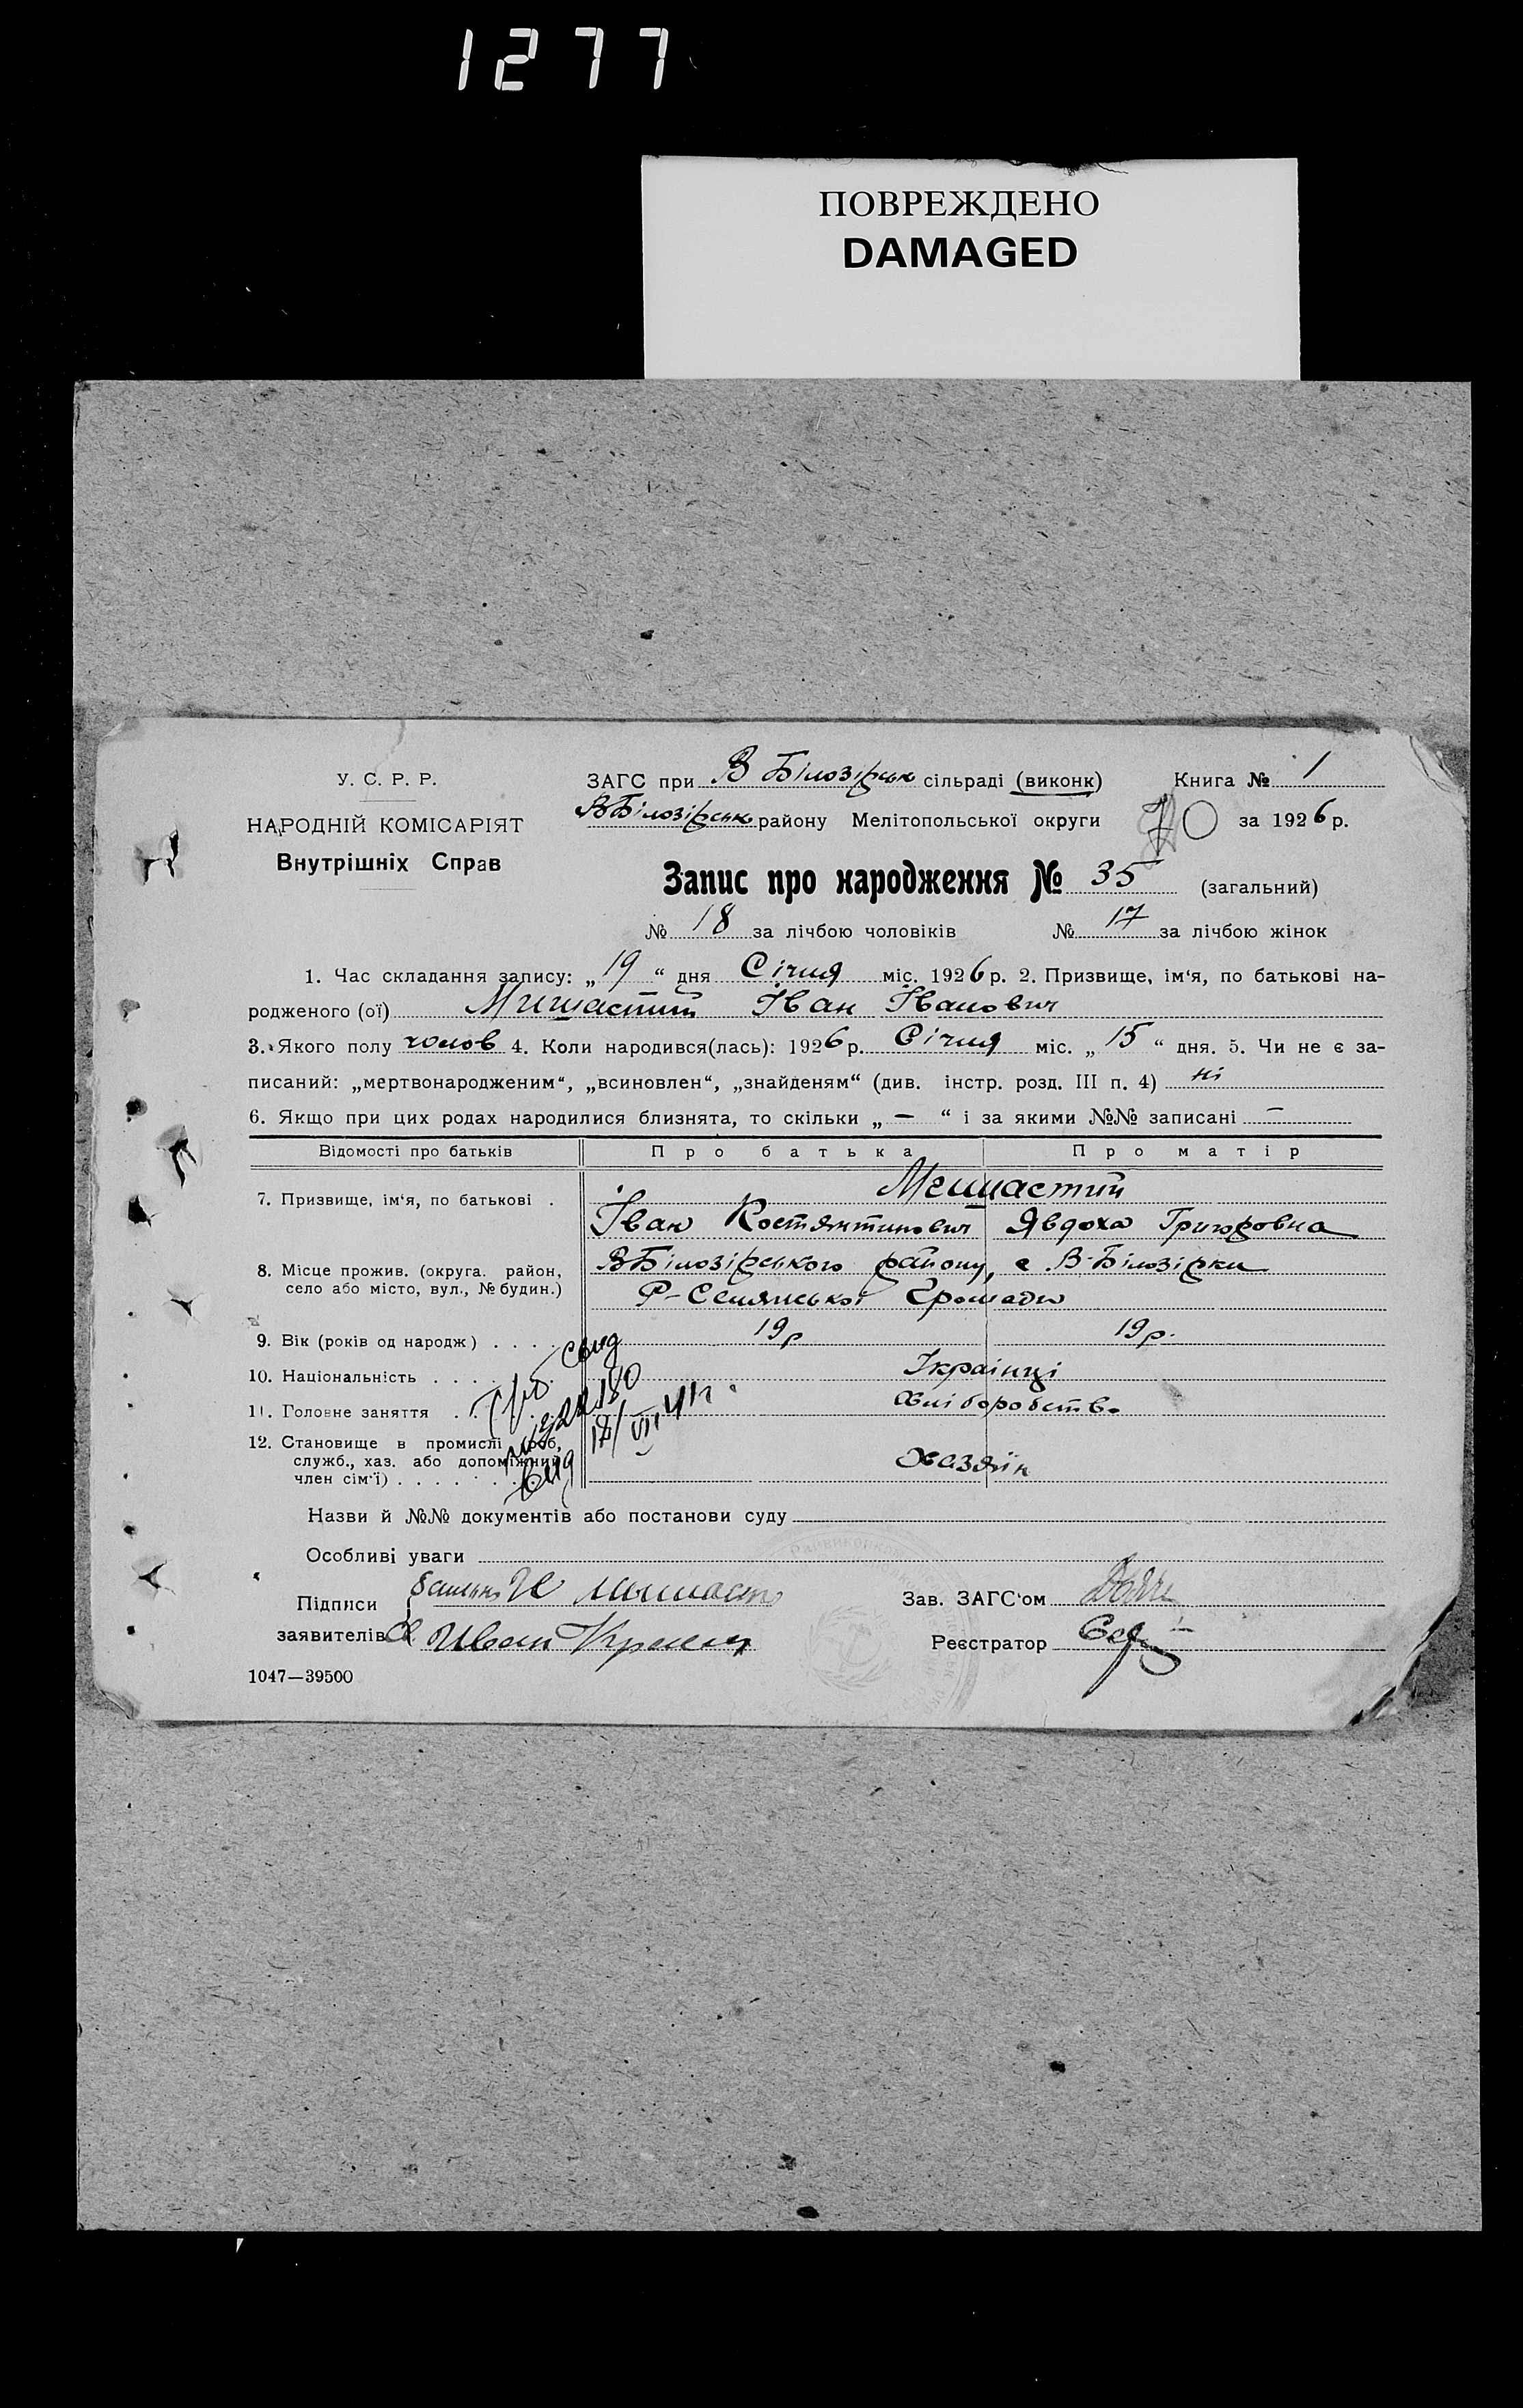 1277
ПОВРЕЖДЕНО
DAMAGED
У. С. Р. Р.
НАРОДНІЙ КОМІСАРІЯТ
Внутрішніх Справ
ЗАГС при В Білозірськ сільраді (виконк) Книга № 1
ВБілозірськ району Мелітопольської округи 70 за 1926 р.
Запис про народження № 35 (загальний)
№ 18 за лічбою чоловіків № 17 за лічбою жінок
1. Час складання запису: „19“ дня Січня міс. 1926 р. 2. Призвище, ім‘я, по батькові на-
родженого (ої) Іван Іванович
3. Якого полу чолов 4. Коли народився(лась): 1926 р. Січня міс. „15“ дня. 5. Чи не є за-
писаний: „мертвонародженим“, „всиновлен“, „знайденям“ (див. інстр. розд. III п. 4) ні
6. Якщо при цих родах народилися близнята, то скільки „—“ і за якими №№ записані —
Відомості про батьків Про батька Про матір
7. Призвище, ім‘я, по батькові .
Іван Костянтинович Явдоха Григоровна
8. Місце прожив. (округа. район,
село або місто, вул., № будин.)
ВБілозірського району, с В-Білозірки
Громади
9. Вік (років од народж) . . . . 19р 19р.
10. Національність . . . . Українці
11. Головне заняття . . . Хліборобство
12. Становище в промислі (роб,
служб., хаз. або допоміжний
член сім‘ї) . . . . . . Хазяїн
Назви й №№ документів або постанови суду
Особливі уваги
Підписи Зав. ЗАГС‘ом
заявителів Иван Реєстратор
1047—39500